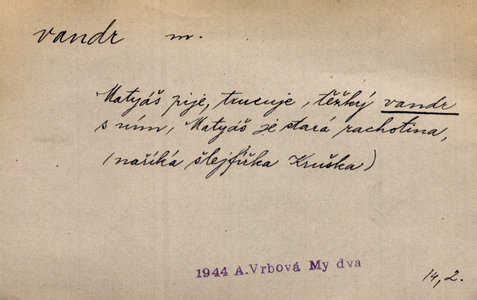 vandr m.
Matyáš pije, trucuje, těžký vandr
s ním, Matyáš je stará rachotina,
(naříká šlejfířka Kruška)
1944 A.Vrbová My dva
14,2.